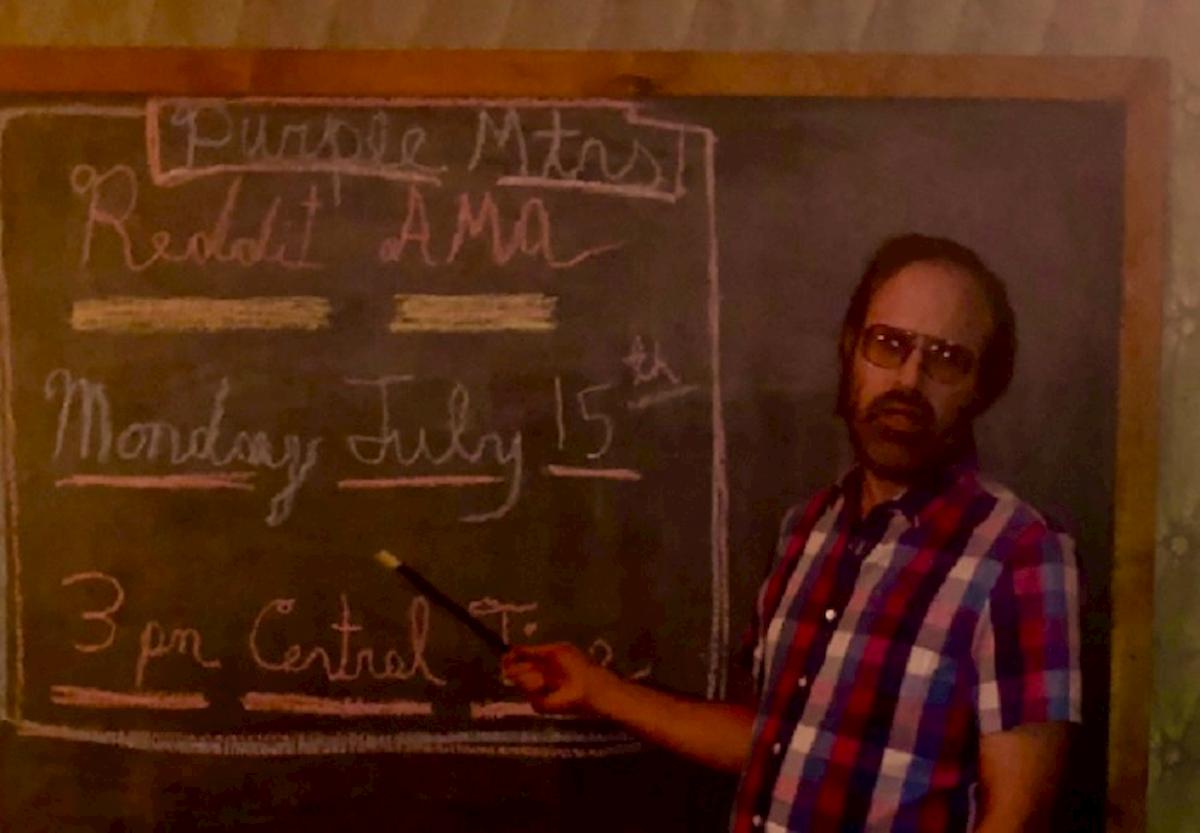 Purple Mtns
Reddit AMA
Monday July 15th
3 pm Central